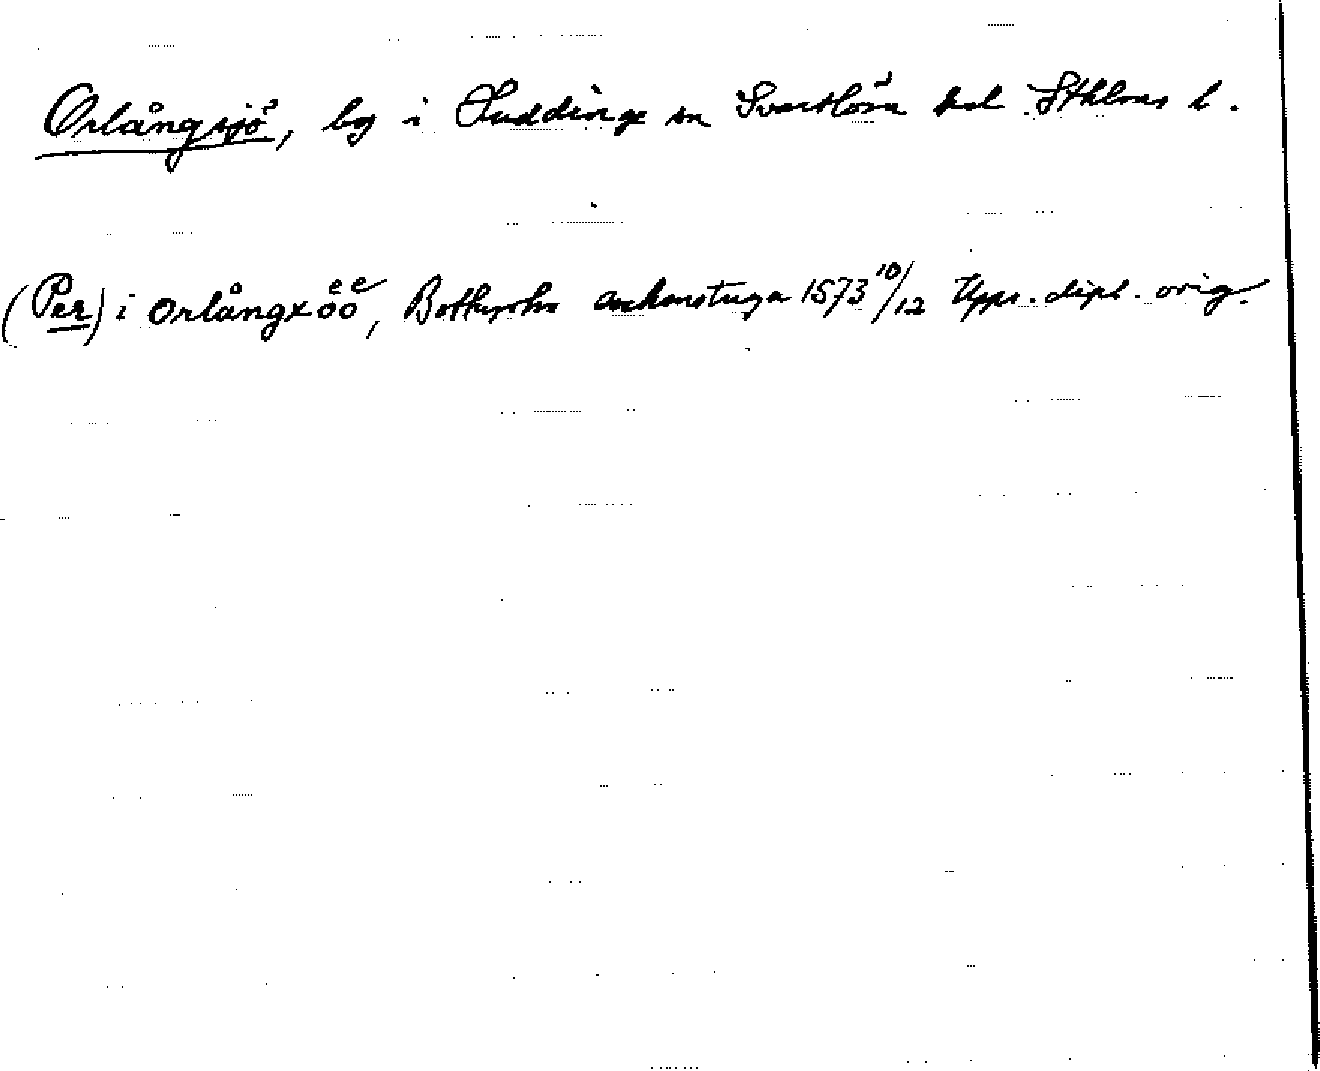 Orlångsjö, by i Huddinge sn Svartlösa hd Sthlms l.
(Per) i Orlångxöö, Botkyrka sockenstuga 1573 10/12 Upps. dipl. orig.